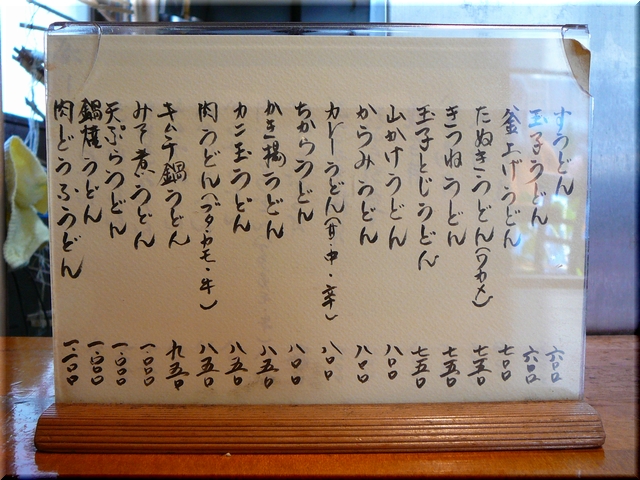 すうどん 六〇〇
玉子うどん 六〇〇
釜上げうどん 七〇〇
たぬきうどん(ワカメ) 七五〇
きつねうどん 七五〇
玉子とじうどん 七五〇
山かけうどん 八〇〇
からみうどん 八〇〇
カレーうどん(甘・中・辛) 八〇〇
ちからうどん 八〇〇
かき揚うどん 八五〇
カニ玉うどん 八五〇
肉うどん(ブタ・カモ・牛) 八五〇
キムチ鍋うどん 九五〇
みそ煮うどん 一、〇〇〇
天ぷらうどん 一、〇〇〇
鍋焼うどん 一、〇〇〇
肉どうふうどん 一、一〇〇